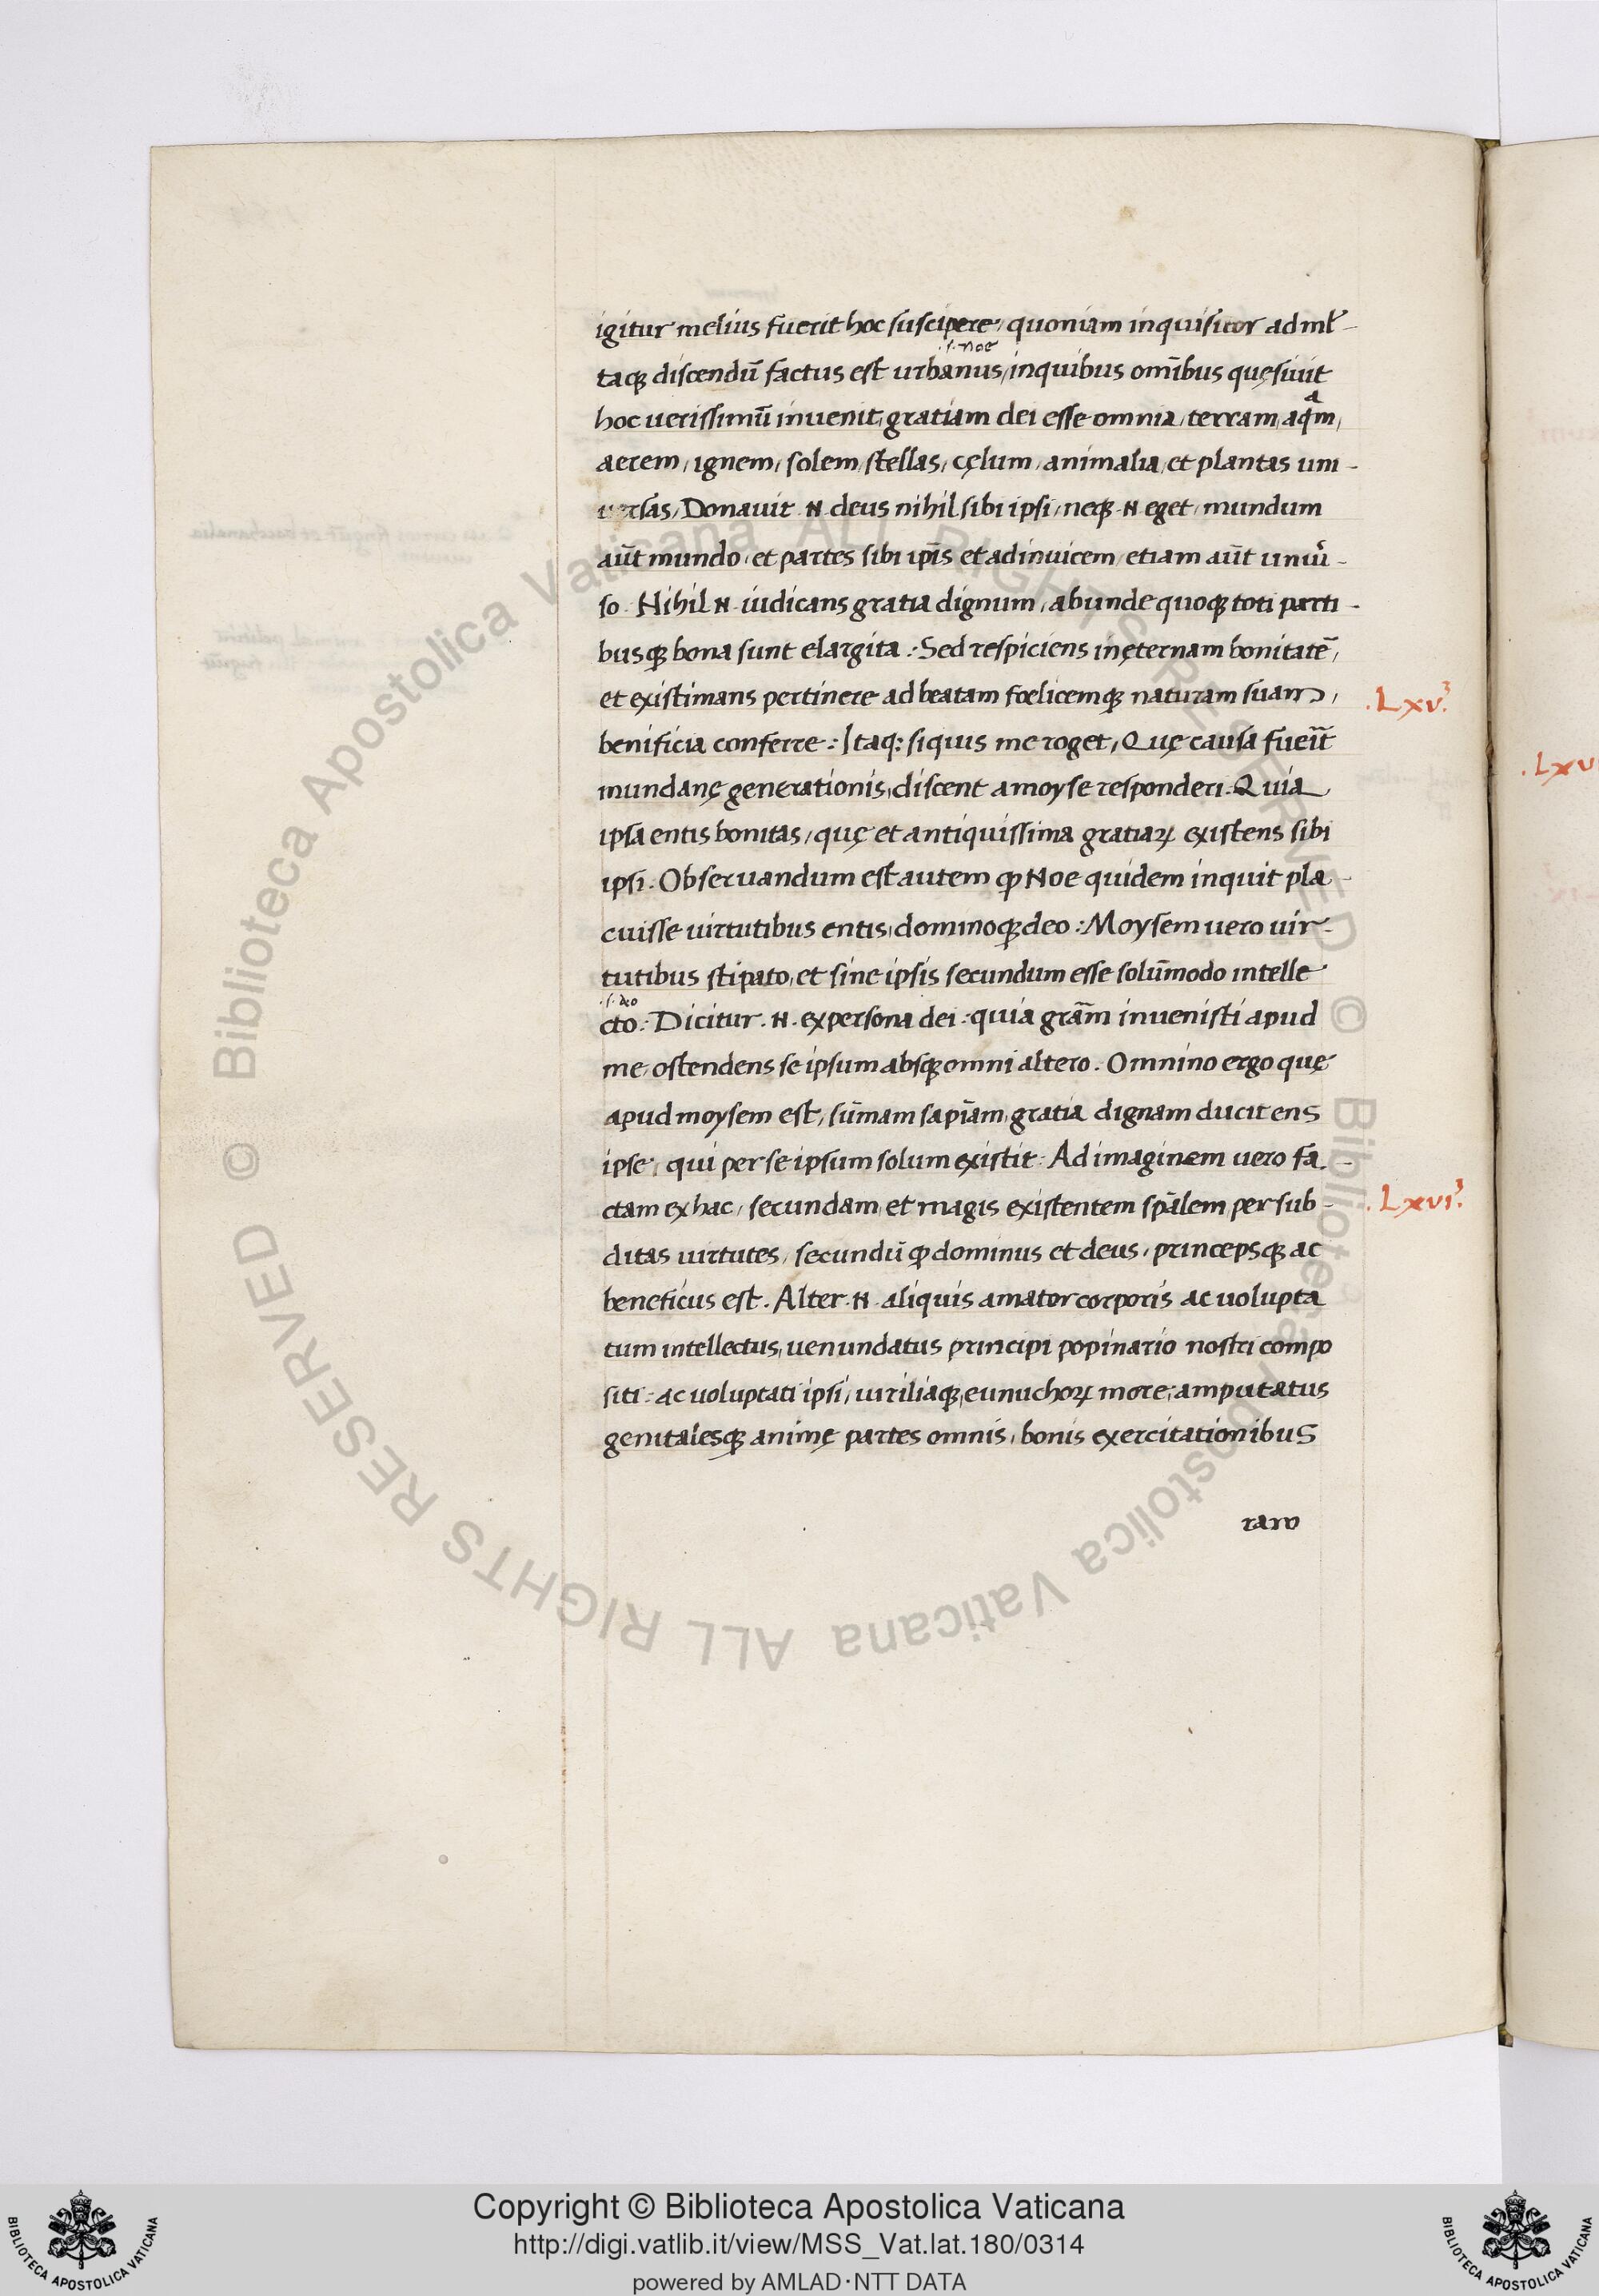 igitur melius fuerit hoc suscipere, quoniam inquisitor ad ml̄-
.s. noe
taqꝫ discendū factus est urbanus, in quibus om̄ibus quęsiuit
hoc uerissimū inuenit, gratiam dei esse omnia, terram, aqᵃm,
aerem, ignem, solem, stellas, cęlum, animalia, et plantas uni-
uersas, Donauit .N. deus nihil sibi ipsi, neqꝫ .N. eget, mundum
aūt mundo, et partes sibi ip̄is et adinuicem, etiam aūt uniū-
so. Nihil .N. iudicans gratia dignum, abunde quoqꝫ toti parti-
busqꝫ bona sunt elargita: Sed respiciens in ęternam bonitatē,
et existimans pertinere ad beatam foelicemqꝫ naturam suam,
.Lxv.ᶟ
benificia conferre: Itaqꝫ: siquis me roget, Quę causa fueīt
mundanę generationis, discent a moyse responderi. Quia
ipsa entis bonitas, quę et antiquissima gratiaꝝ existens sibi
ipsi. Obseruandum est autem ꝙ Noe quidem inquit pla-
cuisse uirtutibus entis, dominoqꝫ deo: Moysem uero uir-
tutibus stipato, et sine ipsis secundum esse solūmodo intelle
.s. deo
cto: Dicitur .N. ex persona dei: quia grām inuenisti apud
me, ostendens se ipsum absqꝫ omni altero. Omnino ergo quę
apud moysem est, sūmam sapīam, gratia dignam ducit ens
ipse, qui per se ipsum solum existit: Ad imaginem uero fa-
ctam ex hac, secundam, et magis existentem spālem, per sub-
.Lxvi.ᶟ
ditas uirtutes, secundū ꝙ dominus et deus, princepsqꝫ ac
beneficus est. Alter .N. aliquis amator corporis ac uolupta
tum intellectus, uenundatus principi popinario nostri compo
siti: ac uoluptati ipsi, uiriliaqꝫ, eunuchoꝝ more, amputatus
genitalesqꝫ animę partes omnis, bonis exercitationibus
raro
.Lxv
© Biblioteca Apostolica Vaticana ALL RIGHTS RESERVED © Biblioteca Apostolica Vaticana ALL RIGHTS RESERVED
Copyright © Biblioteca Apostolica Vaticana
http://digi.vatlib.it/view/MSS_Vat.lat.180/0314
powered by AMLAD·NTT DATA
BIBLIOTECA APOSTOLICA VATICANA
BIBLIOTECA APOSTOLICA VATICANA